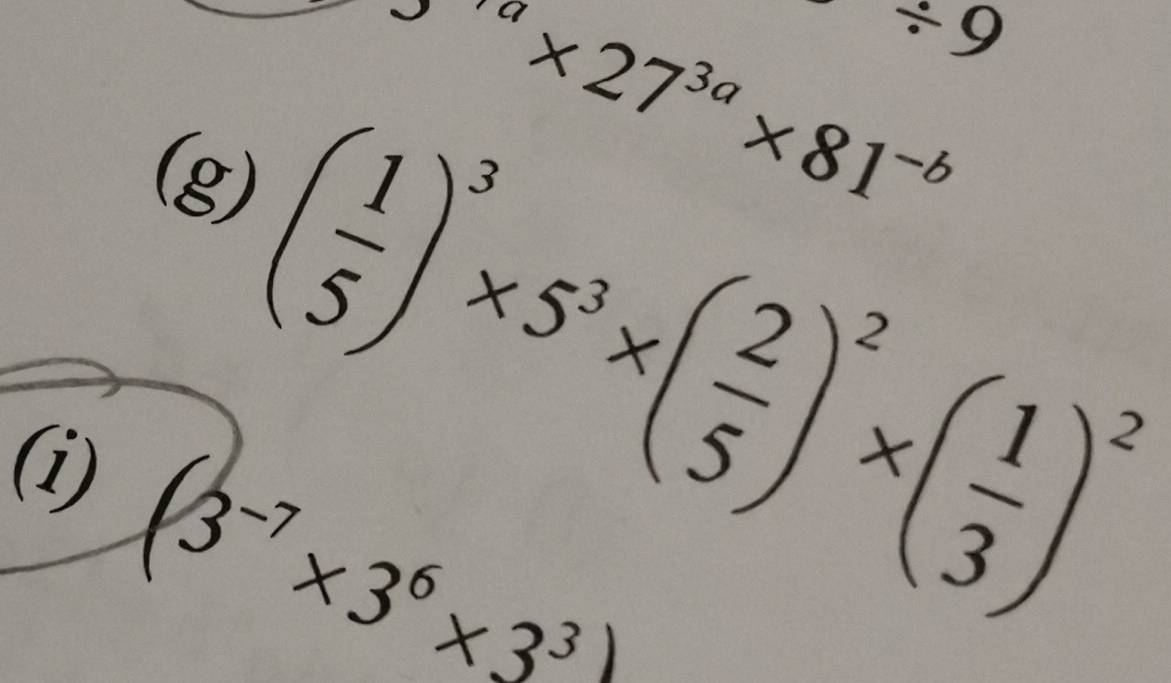 ÷ 9
× 27^{3a} × 81^{-b}
(g) (1/5)^3 × 5^3 × (2/5)^2 × (1/3)^2
(i) (3^{-7} × 3^6 × 3^3)